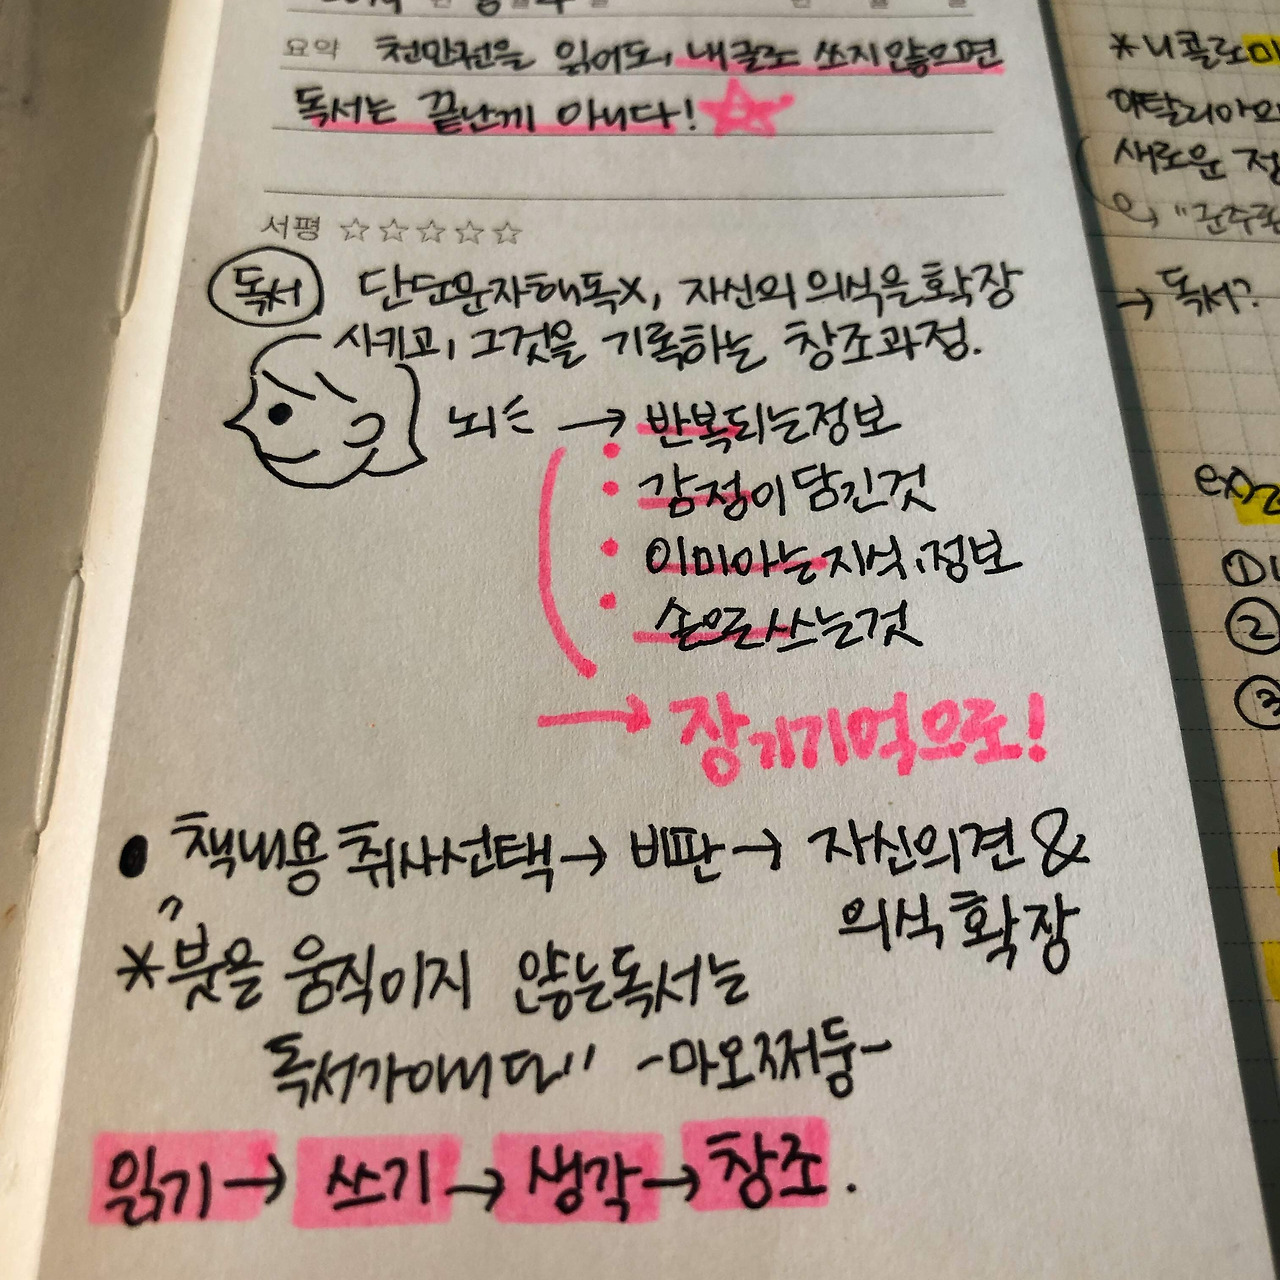 요약 천만권을 읽어도, 내글로 쓰지않으면
독서는 끝난께 아니다!
서평 ☆☆☆☆☆
독서 단단문자해독x, 자신의 의식을 확장
시키고, 그것을 기록하는 창조과정.
뇌는 → 반복되는정보
감정이 담긴것
이미아는지식, 정보
손으로쓰는것
→ 장기기억으로!
● 책내용 취사선택 → 비판 → 자신의견 &
의식 확장
* "붓을 움직이지 않는독서는
독서가아니다" -마오쩌둥-
읽기 → 쓰기 → 생각 → 창조.
*니콜로마
이탈리아의
새로운 정
→ 독서?
ex)
①
②
③